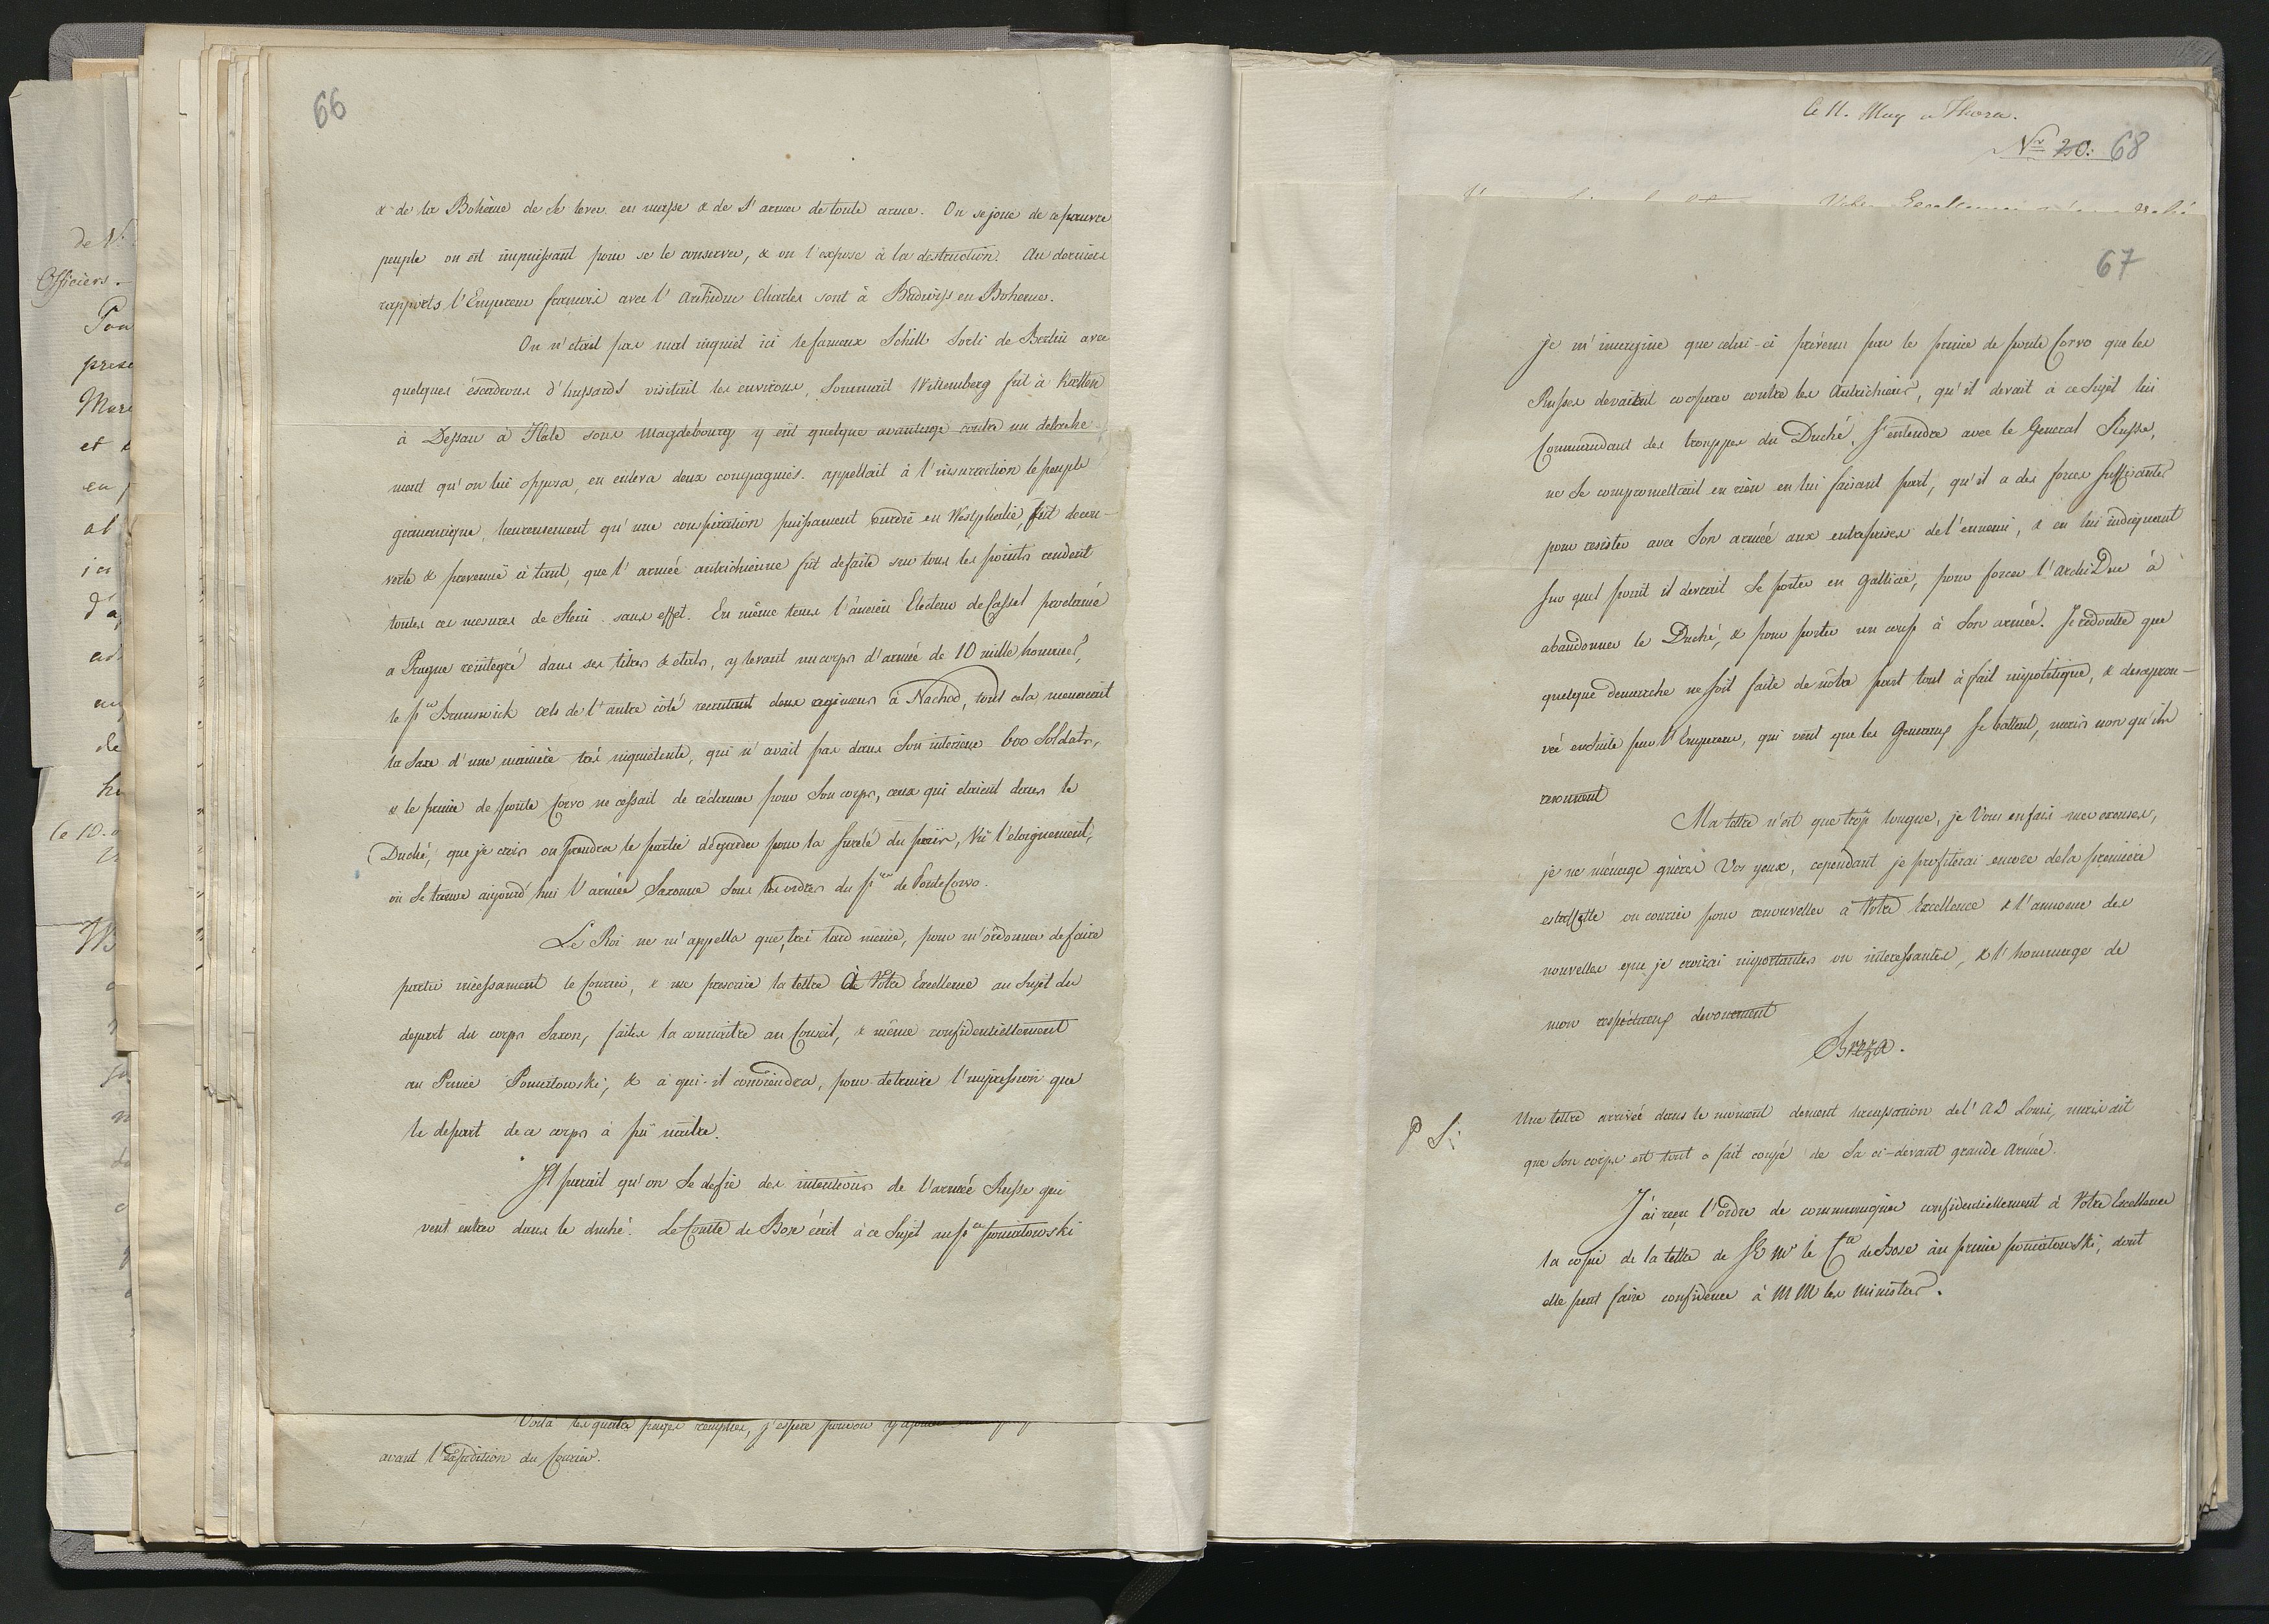 66
& de la Bohème de se lever en masse & de s'armer de toute arme. On se joue de ce pauvre
peuple on est impuissant pour se le conserver, & on l'expose à la destruction. Au derniers
rapports l'Empereur francois avec l'Archiduc Charles sont à Budweiss en Boheme.
On n'etait pas mal inquiet ici le fameux Schill sorti de Berlin avec
quelques éscadrons d'hussards visitait les environs, sommait Wittemberg fut à Kætten
à Dessau à Hale sous Magdebourg y eut quelque avantage contre un detache
ment qu'on lui opposa, en enleva deux compagnies. appellait à l'insurrection le peuple
germanique, heureusement qu'une conspiration puissament ourdie en Westphalie, fut decou-
verte & prevenuë à tant, que l'armée autrichienne fut defaite sur tous les points rendent
toutes ces mesures de Stein sans effet. En même tems l'ancien Electeur de Cassel proclamé
a Prague reintegré dans ses titres & etats, y levant un corps d'armée de 10 mille hommes,
le pce Brunswick Oels de l'autre côté recrutant deux regimens à Nachod, tout cela menacait
la Saxe d'une manière trés inquietente, qui n'avait pas dans son interieur 600 Soldats,
& le prince de ponte Corvo ne cessait de réclamer pour son corps, ceux qui etaient dans le
Duché, que je crois on prendra le partie de garder pour la sureté du païs, Vû l'eloignement,
où se trouve aujourd'hui l'armée Saxonne sous les ordres du pce de Ponte Corvo.
Le Roi ne m'appella que trés tard même, pour m'ordonner de faire
partir incessament le Courier, & me prescrire la lettre à Votre Excellence au Sujet du
depart du corps Saxon, faites la connaitre au Conseil, & même confidentiellement
au Prince Poniatowski, & à qui-il conviendra, pour detruire l'impression que
le depart de ce corps à pû naitre.
Il parait qu'on se defie des intentions de l'armée Russe qui
veut entrer dans le duché. Le Comte de Bose écrit à ce Sujet au pce poniatowski
Voila les quatre pages remplies, j'espere pouvoir y ajouter
avant l'Expedition du Courier.
le 11. May a Thorn.
Nr 20: 68
67
je m'imagine que celui-ci prévenu par le prince de ponte Corvo que les
Russes devaient cooperer contre les Autrichiens, qu'il devait à ce Sujet lui
Commandant des trouppes du Duché, s'entendre avec le General Russe,
ne se compromettrait en rien en lui faisant part, qu'il a des forces suffisantes
pour resister avec Son armée aux entreprises de l'ennemi, & en lui indiquant
sur quel point il devrait se porter en Gallicie, pour forcer l'Archi Duc à
abandonner le Duché, & pour porter un coup à Son armée. Je redoute que
quelque demarche ne soit faite de nôtre part tout à fait impolitique, & desaprou-
vée ensuite par l'Empereur, qui veut que les Generaux se battent, mais non qu'ils
raisonnent
Ma lettre n'est que trop longue, je Vous en fais mes excuses,
je ne ménage guères Vos yeux, cependant je profiterai encore de la première
estaffette ou courier pour renouveller à Votre Excellence & l'annonce des
nouvelles que je croirai importantes ou interessantes, & l'hommage de
mon respectueux devouement
Breza.
P S: Une lettre arrivée dans le moment dement l'occupation de l'AD Louis, mais dit
que Son corps est tout a fait coupé de Sa ci-devant grande Armée.
J'ai reçu l'ordre de communiquer confidentiellement à Votre Excellence
la copie de la lettre de SE Mr le Cte de Bose au prince poniatowski, dont
elle peut faire confidence à MM les Ministres.